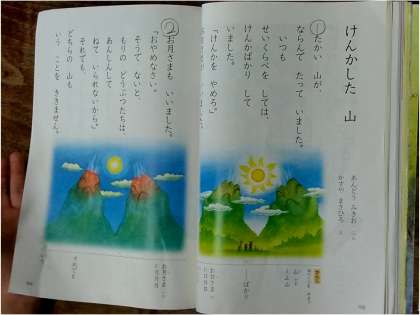 けんかした 山
あんどう みきお
かすや まさひろ
①たかい 山が、
ならんで たって いました。
いつも
せいくらべを しては、
けんかばかり して
いました。
「けんかを やめろ。」
②お月さまも いいました。
「おやめなさい。
そうで ないと、
もりの どうぶつたちは、
あんしんして
ねて いられないから。」
それでも、
どちらの 山も
いう ことを ききません。
山
ばかり
お月さま
それでも